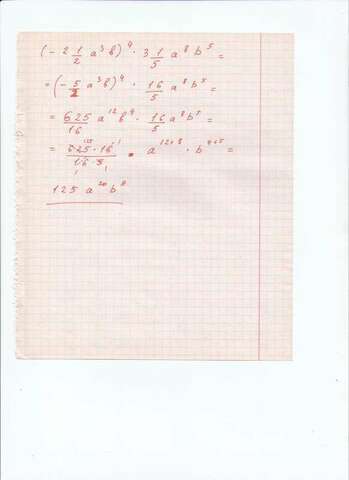 (- 2 1/2 a³ b)⁴ · 3 1/5 a⁸ b⁵ =
= (- 5/2 a³ b)⁴ · 16/5 a⁸ b⁵ =
= 625/16 a¹² b⁴ · 16/5 a⁸ b⁵ =
= 625 · 16/16 · 5 · a¹²⁺⁸ · b⁴⁺⁵ =
125 a²⁰ b⁹